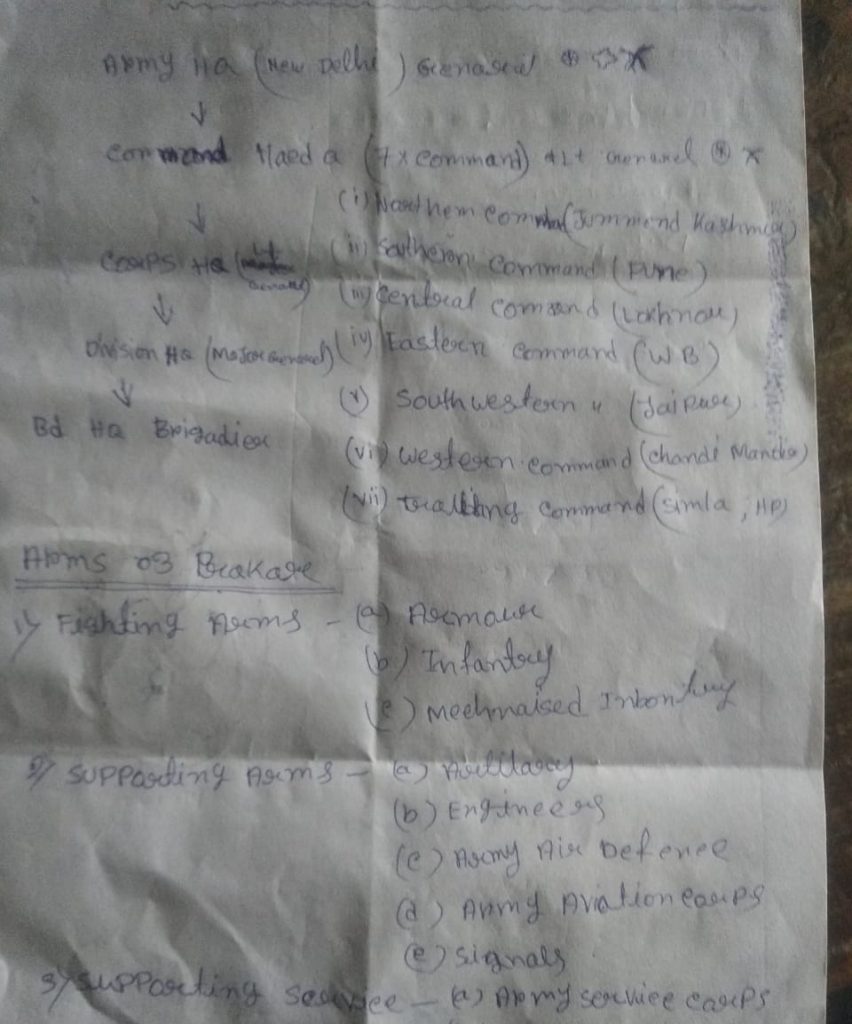 Army HQ (New Delhi) Genarail
↓
Command Haed Q (7 x command) Lt Genarel
↓
(i) Northern Comma (Jummond Kashmir)
Coarps HQ (Lt Genarel) (ii) Southern Command (Pune)
↓
(iii) Central Command (Lakhnou)
Division HQ (Major General) (iv) Eastern Command (WB)
↓
(v) Southwestern " (JaiPure)
Bd HQ Brigadier
(vi) Western Command (Chandi Mandir)
(vii) Command (Simla, HP)
Arms of
1) Fighting Arms - (a) Armour
(b) Infantry
(c) Mechnaised Infantry
2) Supporting Arms - (a) Artilary
(b) Engineers
(c) Army Air Defence
(d) Army Aviation Coarps
(e) Signals
3) Supporting Service - (a) Army Service Coarps